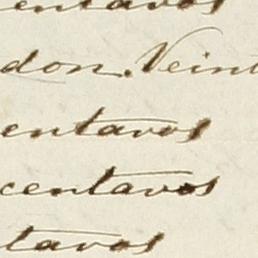 entavos
don. Veint
entavos
centavos
tavos